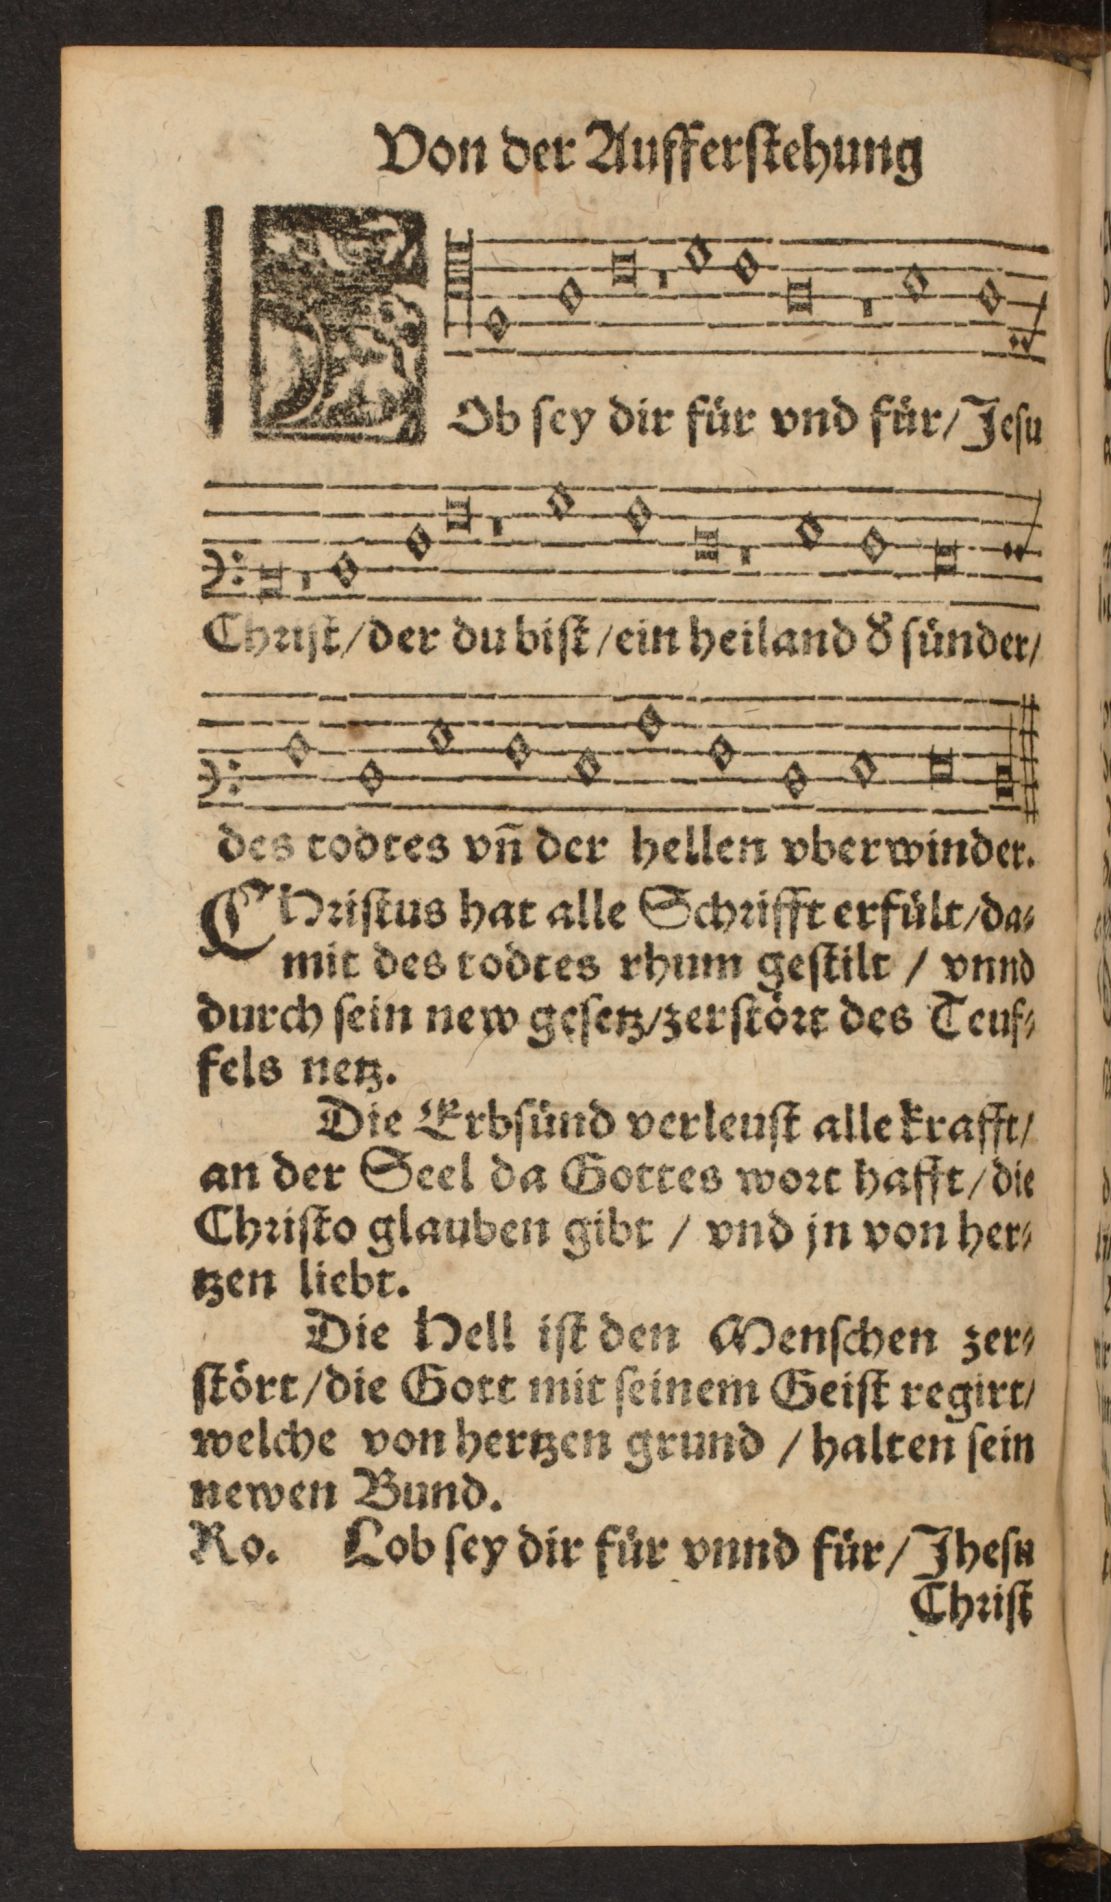 Von der Aufferstehung
LOb sey dir für vnd für/ Jesu
Christ/der du bist/ein heiland d̕ sünder/
des todtes vñ der hellen vberwinder.
CHristus hat alle Schrifft erfült/da⸗
mit des todtes rhum gestilt / vnnd
durch sein new gesetz/zerstört des Teuf⸗
fels netz.
Die Erbsünd verleust alle krafft/
an der Seel da Gottes wort hafft/die
Christo glauben gibt / vnd jn von her⸗
tzen liebt.
Die Hell ist den Menschen zer⸗
stört/die Gott mit seinem Geist regirt/
welche von hertzen grund / halten sein
newen Bund.
Ro. Lob sey dir für vnnd für/ Jhesu
Christ